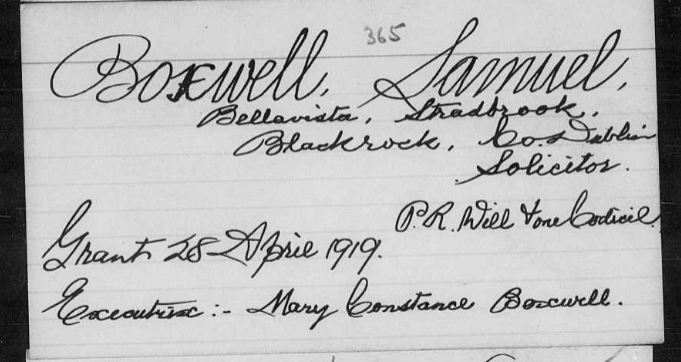 365
Boxwell, Samuel,
Bellavista, Stradbrook,
Blackrock, Co. Dublin
Solicitor.
P.R. Will & one Codicil.
Grant 28 April 1919.
Executrix :- Mary Constance Boxwell.